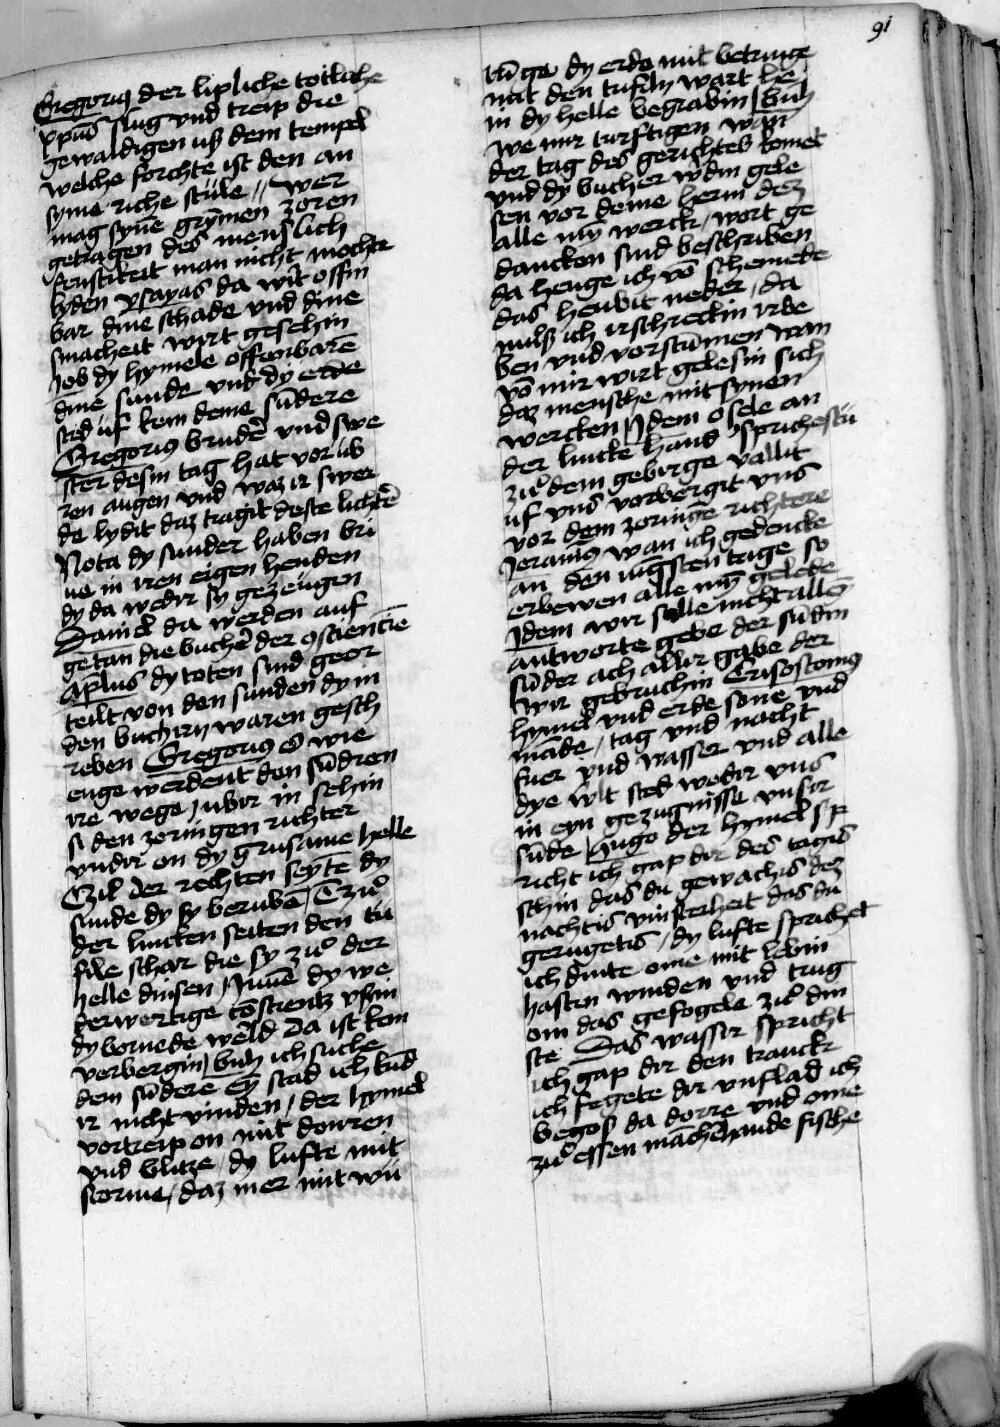 91
Gregorius der lipliche totliche
xpūs slug vnd treip die
gewaldigen uß dem tempel
welche forchte ist den an
syme riche stule // wer
mag syne grȳmen zoren
getragen des menslich
fenstikeit man nicht mochte
lyden ysayas da wīt offin
bar dine schade vnd dine
smacheit wirt gesehin
Job dy hymele offenbare
dine sunde vnd dy erde
sted uf kein deme sūdere
Gregorius bruder vnd swe
ster desin tag hat vor uw
ren augen vnd waz ir swer
de lydit daz tragit deste lichter
Nota dy sunder haben bri
ue in iren eigen henden
dy da wedir sy gezeugen
Daniel da werden auf
getan die bucher der ꝯsciencie
aplus dy toten sind geor
teilt von den sunden dy in
den buchern waren gesch
reben Gregorius o wie
enge werdent den sūdren
ire wege / ubir in sehin
si den zoringen richter
vndir on dy grusame helle
Czu der rechten seyte dy
sunde dy sy beruben / Czu
der lincken seiten den tu
fele schar die sy zu der
helle dinsen / Inne dy we
derwertige cōscientz vßin
dy bornede werld Da ist kein
verbergin / ich suche
dem sūdere eȳ stad ich kūd
ir nicht vinden / der hymel
vortreip on mit donren
vnd blitze / dy lufte mit
storme / daz mer mit wu
tūge dy erde mit betruge
mit den tufeln wart he
in dy helle begrabin
we mir turftigen wan
der tag des gerichtes komet
vnd dy bucher wdin gele
sen vor deme herin dez
alle myn werck / wort ge
dancken sind beschriben
da henge ich vō schemede
das heubit neder / da
muß ich irschreckin irbe
ben vnd vorstūmen wan
vō mir wirt gelesin sich
daz mensche mit synen
wercken Idem o sele an
der lincke hand sprichestu
zu dem gebirge vallit
uf vns vorbergit vns
vor dem zoringē richtere
Jeronimus wan ich gedencke
an den iugsten tage so
erbewen alle myn gelede
Idem wir solle nicht allen
antworte gebe der sūdin
sūder ach aller gabe der
wir gebruchin Crisostomus
hymel vnd erde sone vnd
mānde / tag vnd nacht
fuer vnd wasser vnd alle
dye wlt sted wedir vns
in eyn gezugnisse vnsir
sūde / Hugo der hymel sp
richt ich gap dir des tagis
schin das du gewachis dez
nachtis vinsterheit das du
gerugetis / dy lufte sprachet
ich dinte ome mit lebin
hastin winden vnd trug
om das gefogele zu din
ste Das wasser spricht
ich gap dir den tranckt
ich fegete dir vnflad ich
begos da dorre vnd ome
zu essen māchehande fische